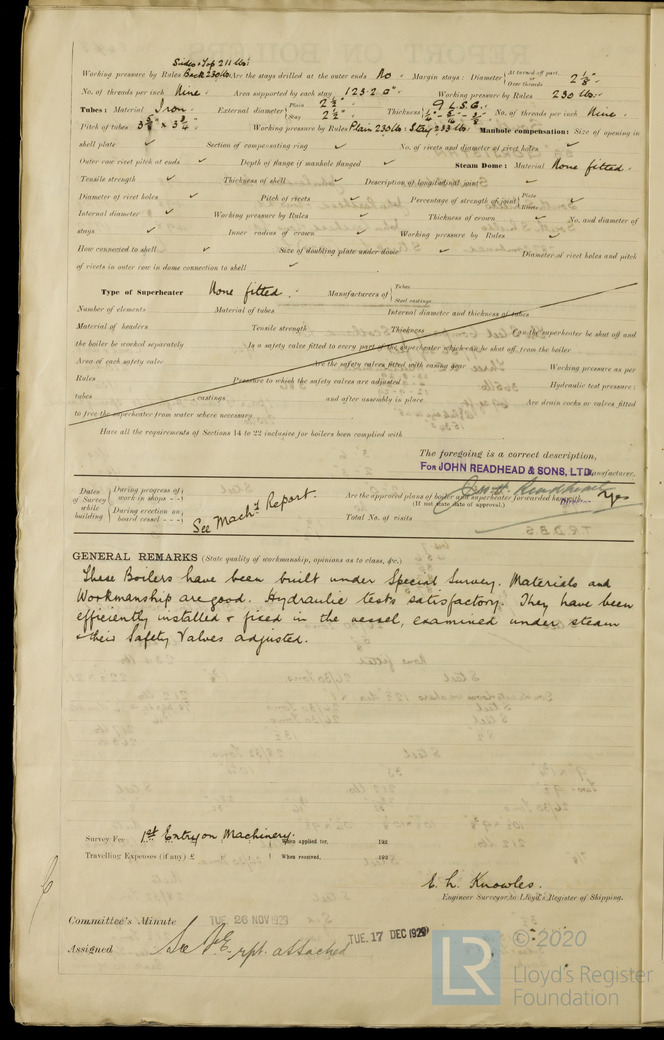 Sides & Top 211 lbs:
Working pressure by Rules Back 230 lbs. Are the stays drilled at the outer ends No. Margin stays: Diameter { At turned off part, or Over threads 2 1/8".
No. of threads per inch Nine. Area supported by each stay 123.2 ▫". Working pressure by Rules 230 lbs.
Tubes: Material Iron. External diameter { Plain 2 1/2" Stay 2 1/2" Thickness { 9 L.S.G. 1/4" - 5/16" - 3/8" No. of threads per inch Nine.
Pitch of tubes 3 5/8" x 3 3/4" Working pressure by Rules Plain 230 lbs: Stay 233 lbs: Manhole compensation: Size of opening in
shell plate ✓ Section of compensating ring ✓ No. of rivets and diameter of rivet holes ✓
Outer row rivet pitch at ends ✓ Depth of flange if manhole flanged ✓ Steam Dome: Material None fitted.
Tensile strength ✓ Thickness of shell ✓ Description of longitudinal joint ✓
Diameter of rivet holes ✓ Pitch of rivets ✓ Percentage of strength of joint { Plate Rivets ✓
Internal diameter ✓ Working pressure by Rules ✓ Thickness of crown ✓ No. and diameter of
stays ✓ Inner radius of crown ✓ Working pressure by Rules ✓
How connected to shell ✓ Size of doubling plate under dome ✓ Diameter of rivet holes and pitch
of rivets in outer row in dome connection to shell ✓
Type of Superheater None fitted. Manufacturers of { Tubes Steel castings
Number of elements Material of tubes Internal diameter and thickness of tubes
Material of headers Tensile strength Thickness Can the superheater be shut off and
the boiler be worked separately Is a safety valve fitted to every part of the superheater which can be shut off from the boiler
Area of each safety valve Are the safety valves fitted with easing gear Working pressure as per
Rules Pressure to which the safety valves are adjusted Hydraulic test pressure:
tubes castings and after assembly in place Are drain cocks or valves fitted
to free the superheater from water where necessary
Have all the requirements of Sections 14 to 22 inclusive for boilers been complied with
The foregoing is a correct description,
FOR JOHN READHEAD & SONS, LTD. Manufacturer.
Dates of Survey while building { During progress of work in shops - - During erection on board vessel - - - } See Mach'y Report.
Are the approved plans of boiler and superheater forwarded herewith Yes
(If not state date of approval.)
Total No. of visits
GENERAL REMARKS (State quality of workmanship, opinions as to class, &c.)
These Boilers have been built under Special Survey. Materials and
Workmanship are good. Hydraulic tests satisfactory. They have been
efficiently installed & fixed in the vessel, examined under steam
& their Safety Valves adjusted.
Survey Fee 1st Entry on Machinery. When applied for, 192
Travelling Expenses (if any) £ When received, 192
E. H. Knowles.
Engineer Surveyor to Lloyd's Register of Shipping.
Committee's Minute TUE 26 NOV 1929
TUE. 17 DEC 1929
Assigned See F.E. rpt. attached
LR © 2020
Lloyd's Register
Foundation